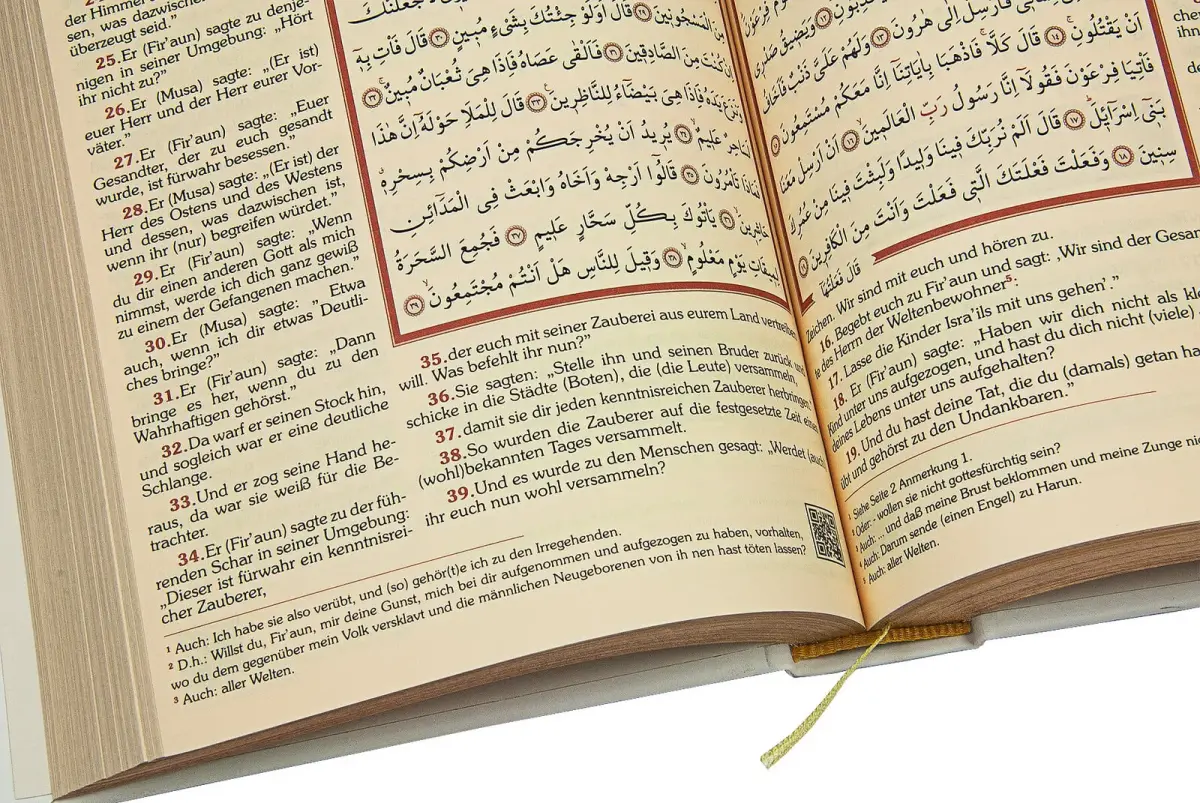 der Himmel
sen, was dazwischen
überzeugt seid."
25.Er (Fir'aun) sagte zu denje-
nigen in seiner Umgebung: „Hört
ihr nicht zu?"
26.Er (Musa) sagte: „(Er ist)
euer Herr und der Herr eurer Vor-
väter."
27.Er (Fir'aun) sagte: „Euer
Gesandter, der zu euch gesandt
wurde, ist fürwahr besessen."
28.Er (Musa) sagte: „(Er ist) der
Herr des Ostens und des Westens
und dessen, was dazwischen ist,
wenn ihr (nur) begreifen würdet."
29.Er (Fir'aun) sagte: „Wenn
du dir einen anderen Gott als mich
nimmst, werde ich dich ganz gewiß
zu einem der Gefangenen machen."
30.Er (Musa) sagte: „ Etwa
auch, wenn ich dir etwas Deutli-
ches bringe?"
31.Er (Fir'aun) sagte: „Dann
bringe es her, wenn du zu den
Wahrhaftigen gehörst."
32.Da warf er seinen Stock hin,
und sogleich war er eine deutliche
Schlange.
33.Und er zog seine Hand he-
raus, da war sie weiß für die Be-
trachter.
34.Er (Fir'aun) sagte zu der füh-
renden Schar in seiner Umgebung:
„Dieser ist fürwahr ein kenntnisrei-
cher Zauberer,
مِنَ الْمَسْجُونِينَ ﴿٢٩﴾ قَالَ اَوَلَوْ جِئْتُكَ بِشَىْءٍ مُبِينٍ ﴿٣٠﴾ قَالَ فَاْتِ بِهٓ
اِنْ كُنْتَ مِنَ الصَّادِقِينَ ﴿٣١﴾ فَاَلْقٰى عَصَاهُ فَاِذَا هِىَ ثُعْبَانٌ مُبِينٌ ﴿٣٢﴾
وَنَزَعَ يَدَهُ فَاِذَا هِىَ بَيْضَٓاءُ لِلنَّاظِرِينَ ﴿٣٣﴾ قَالَ لِلْمَلَاِ حَوْلَهُٓ اِنَّ هٰذَا
لَسَاحِرٌ عَلِيمٌ ﴿٣٤﴾ يُرِيدُ اَنْ يُخْرِجَكُمْ مِنْ اَرْضِكُمْ بِسِحْرِهِ
فَمَاذَا تَاْمُرُونَ ﴿٣٥﴾ قَالُٓوا اَرْجِهْ وَاَخَاهُ وَابْعَثْ فِى الْمَدَٓائِنِ
حَاشِرِينَ ﴿٣٦﴾ يَاْتُوكَ بِكُلِّ سَحَّارٍ عَلِيمٍ ﴿٣٧﴾ فَجُمِعَ السَّحَرَةُ
لِمِيقَاتِ يَوْمٍ مَعْلُومٍ ﴿٣٨﴾ وَقِيلَ لِلنَّاسِ هَلْ اَنْتُمْ مُجْتَمِعُونَ ﴿٣٩﴾
35.der euch mit seiner Zauberei aus eurem Land vertreiben
will. Was befehlt ihr nun?"
36.Sie sagten: „Stelle ihn und seinen Bruder zurück und
schicke in die Städte (Boten), die (die Leute) versammeln,
37.damit sie dir jeden kenntnisreichen Zauberer herbringen."
38.So wurden die Zauberer auf die festgesetzte Zeit eines
(wohl)bekannten Tages versammelt.
39.Und es wurde zu den Menschen gesagt: „Werdet (auch)
ihr euch nun wohl versammeln?
1 Auch: Ich habe sie also verübt, und (so) gehör(t)e ich zu den Irregehenden.
2 D.h.: Willst du, Fir'aun, mir deine Gunst, mich bei dir aufgenommen und aufgezogen zu haben, vorhalten,
wo du dem gegenüber mein Volk versklavt und die männlichen Neugeborenen von ih nen hast töten lassen?
3 Auch: aller Welten.
فَاَرْسِلْ اِلٰى هٰرُونَ ﴿١٣﴾ وَلَهُمْ عَلَىَّ ذَنْبٌ فَاَخَافُ
اَنْ يَقْتُلُونِ ﴿١٤﴾ قَالَ كَلَّا فَاذْهَبَا بِاٰيَاتِنَٓا اِنَّا مَعَكُمْ مُسْتَمِعُونَ ﴿١٥﴾
فَاْتِيَا فِرْعَوْنَ فَقُولَٓا اِنَّا رَسُولُ رَبِّ الْعَالَمِينَ ﴿١٦﴾ اَنْ اَرْسِلْ مَعَنَا
بَنِٓى اِسْرَٓائِلَ ﴿١٧﴾ قَالَ اَلَمْ نُرَبِّكَ فِينَا وَلِيدًا وَلَبِثْتَ فِينَا مِنْ عُمُرِكَ
سِنِينَ ﴿١٨﴾ وَفَعَلْتَ فَعْلَتَكَ الَّتِى فَعَلْتَ وَاَنْتَ مِنَ الْكَافِرِينَ ﴿١٩﴾
قَالَ فَعَلْتُهَٓا
Zeichen. Wir sind mit euch und hören zu.
16. Begebt euch zu Fir'aun und sagt: ‚Wir sind der Gesan
te des Herrn der Weltenbewohner5:
17. Lasse die Kinder Isra'ils mit uns gehen'."
18. Er (Fir'aun) sagte: „Haben wir dich nicht als kle
Kind unter uns aufgezogen, und hast du dich nicht (viele)
deines Lebens unter uns aufgehalten?
19. Und du hast deine Tat, die du (damals) getan ha
übt und gehörst zu den Undankbaren."
1 Siehe Seite 2 Anmerkung 1.
2 Oder: - wollen sie nicht gottesfürchtig sein?
3 Auch: ... und daß meine Brust beklommen und meine Zunge nic
4 Auch: Darum sende (einen Engel) zu Harun.
5 Auch: aller Welten.